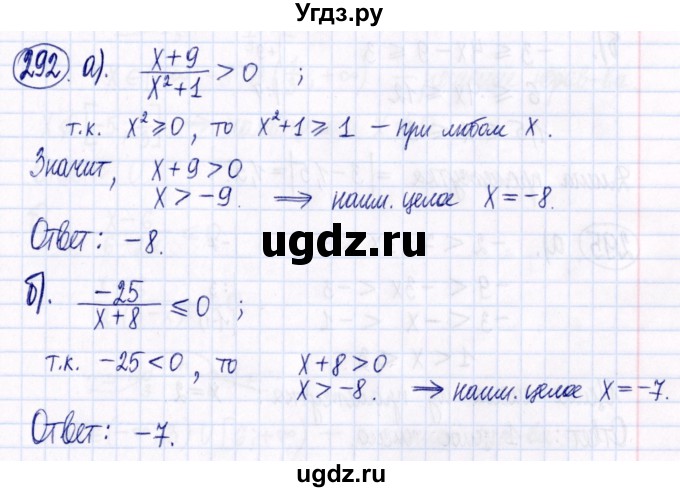 Угдз.ру
292. а). (x+9)/(x²+1) > 0 ;
т.к. x² ⩾ 0, то x²+1 ⩾ 1 – при любом x.
Значит, x+9 > 0
x > -9. ⟹ наим. целое x = -8.
Ответ: -8.
ugdz.ru
б). (-25)/(x+8) ⩽ 0 ;
т.к. -25 < 0, то x+8 > 0
x > -8. ⟹ наим. целое x = -7.
Ответ: -7.
ugdz.ru